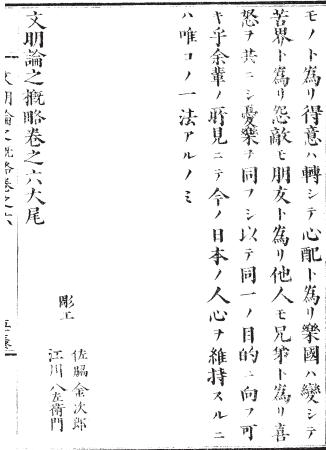 モノト爲リ得意ハ轉シテ心配ト爲リ樂國ハ變シテ
苦界ト爲リ怨敵モ朋友ト爲リ他人モ兄弟ト爲リ喜
怒ヲ共ニシ憂樂ヲ同フシ以テ同一ノ目的ニ向フ可
キ乎余輩ノ所見ニテ今ノ日本ノ人心ヲ維持スルニ
ハ唯コノ一法アルノミ
文明論之概略卷之六大尾
彫工
佐脇金次郎
江川八左衛門
文明論之概略卷之六